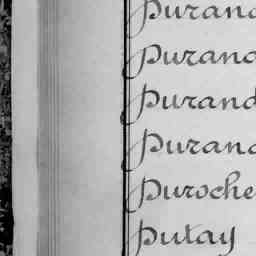 Purand
Purand
Purand
Purand
Puroche
Putay